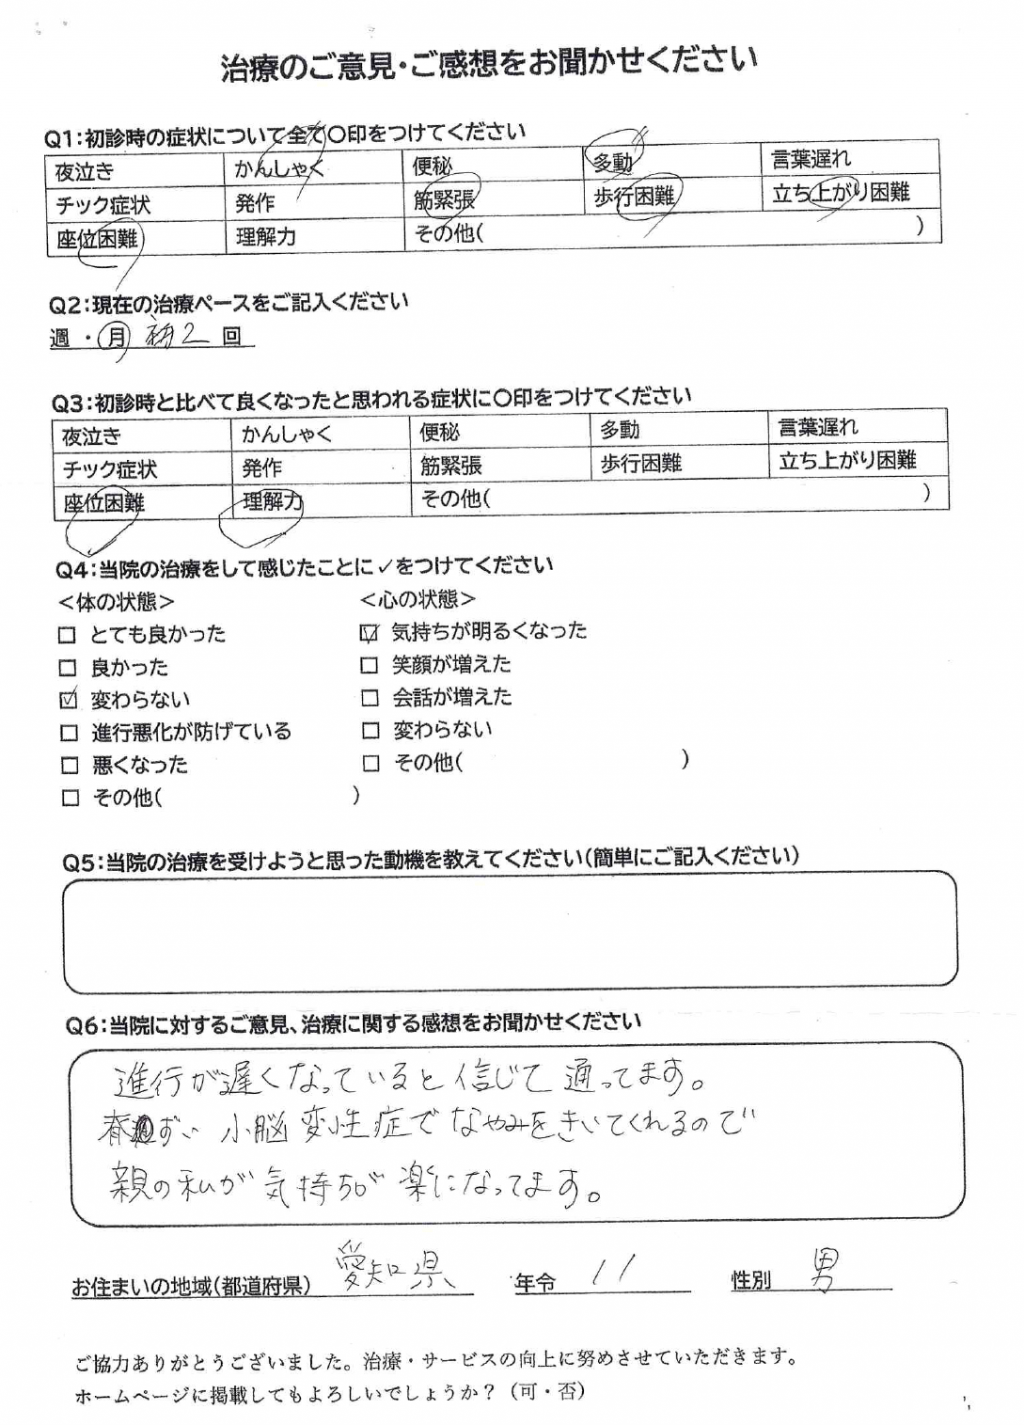 治療のご意見・ご感想をお聞かせください
Q1:初診時の症状について全て〇印をつけてください
夜泣き かんしゃく 便秘 多動 言葉遅れ
チック症状 発作 筋緊張 歩行困難 立ち上がり困難
座位困難 理解力 その他( )
Q2:現在の治療ペースをご記入ください
週・月 2 回
Q3:初診時と比べて良くなったと思われる症状に〇印をつけてください
夜泣き かんしゃく 便秘 多動 言葉遅れ
チック症状 発作 筋緊張 歩行困難 立ち上がり困難
座位困難 理解力 その他( )
Q4:当院の治療をして感じたことに✓をつけてください
<体の状態> <心の状態>
□ とても良かった ☑ 気持ちが明るくなった
□ 良かった □ 笑顔が増えた
☑ 変わらない □ 会話が増えた
□ 進行悪化が防げている □ 変わらない
□ 悪くなった □ その他( )
□ その他( )
Q5:当院の治療を受けようと思った動機を教えてください(簡単にご記入ください)
Q6:当院に対するご意見、治療に関する感想をお聞かせください
進行が遅くなっていると信じて通ってます。
ずい小脳変性症でなやみをきいてくれるので
親の私が気持ちが楽になってます。
お住まいの地域(都道府県) 愛知県 年令 11 性別 男
ご協力ありがとうございました。治療・サービスの向上に努めさせていただきます。
ホームページに掲載してもよろしいでしょうか?(可・否)